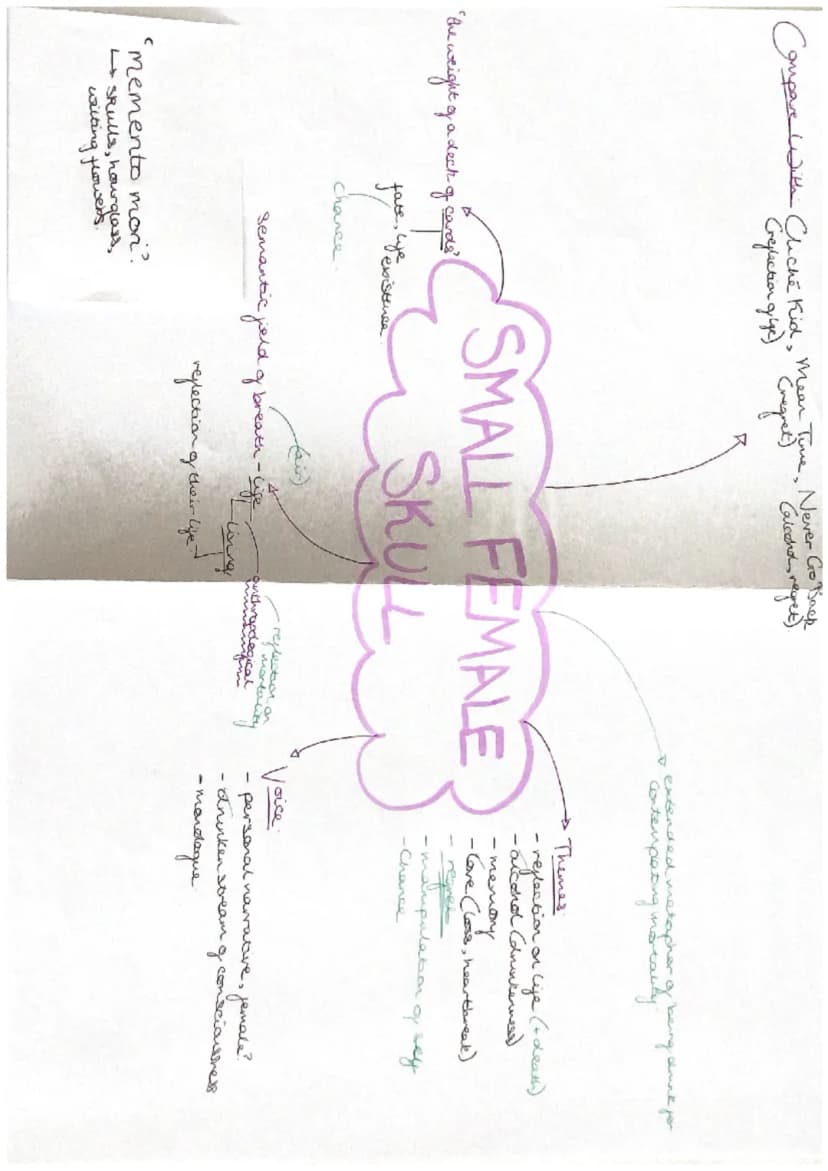 Compare With: Cliché Kid, Mean Time, Never Go Back
(reflection of life) (regret) (alcohol, regret)
"the weight of a deck of cards"
fate, life
existence
chance
SMALL FEMALE
SKULL
extended metaphor of being drunk for
contemplating mortality
Themes:
- reflection on life (+ death)
- alcohol (drunkenness)
- memory
- love (loss, heartbreak)
- regret
- manipulation of self
- Chance
"memento mori"?
→ skulls, hourglass,
wilting flowers.
Semantic field of breath - life
(air)
living
reflection of their life
reflection on
mortality
Voice:
- personal narrative, female?
- drunken stream of consciousness
- monologue